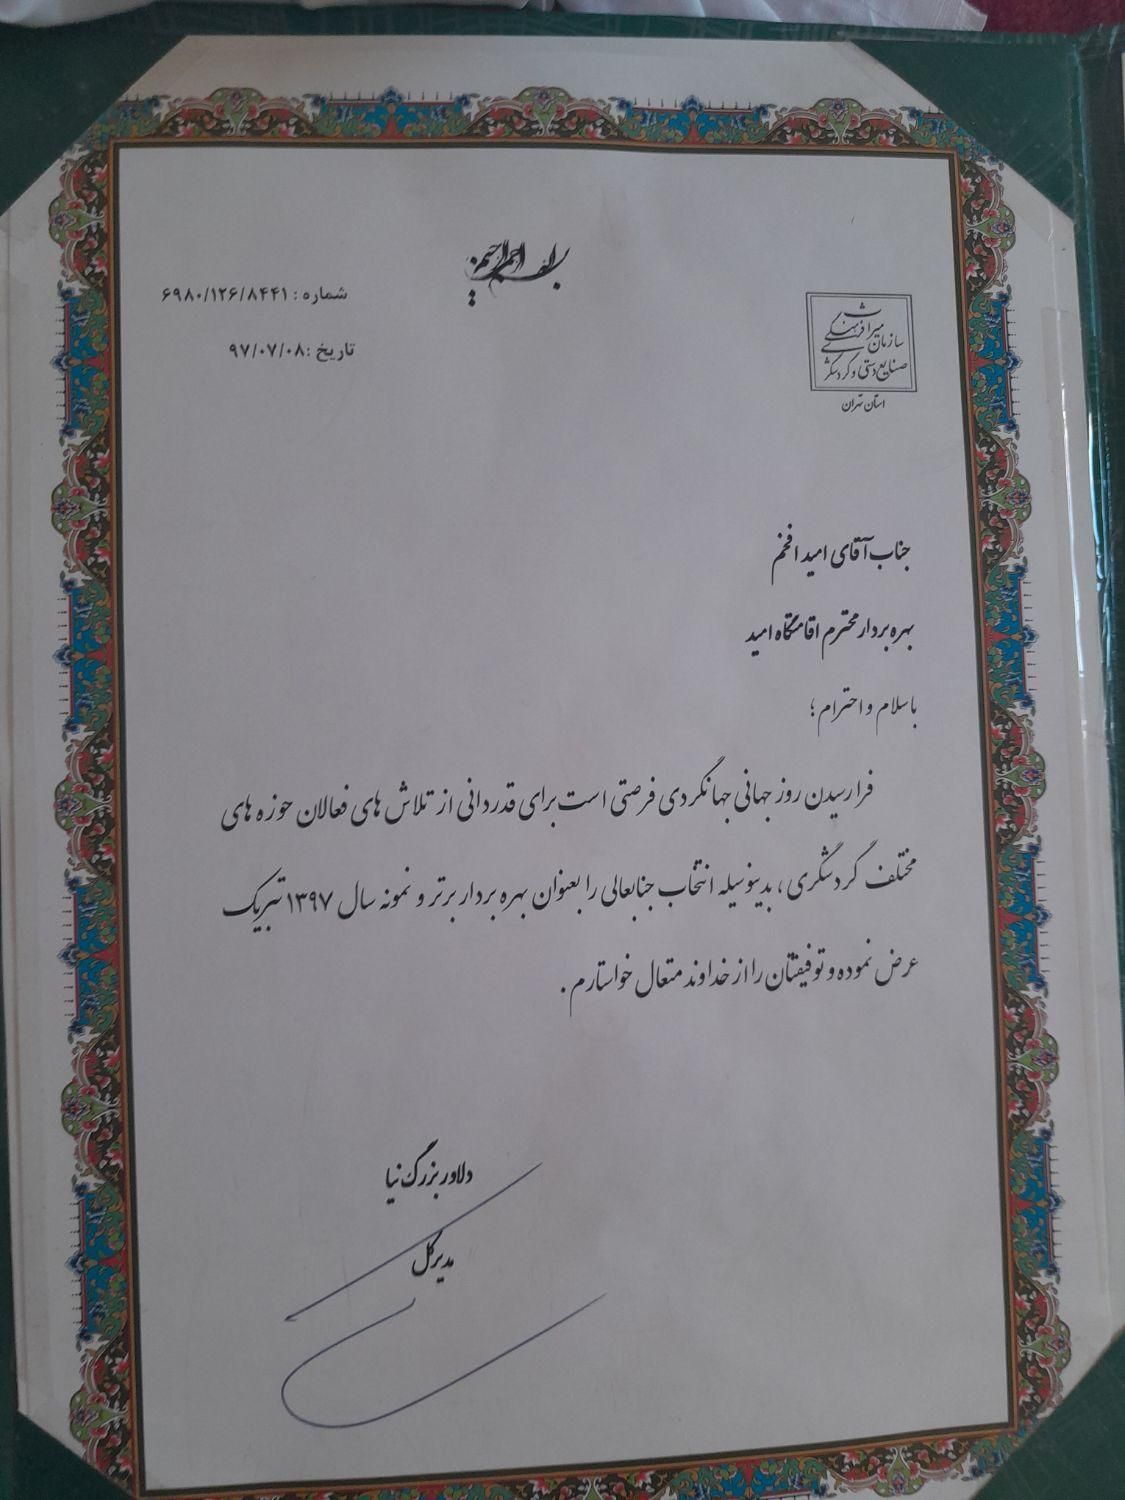 بسم الله الرحمن الرحیم
شماره : ۶۹۸۰/۱۲۶/۸۴۴۱
تاریخ :۹۷/۰۷/۰۸
سازمان میراث فرهنگی
صنایع دستی و گردشگری
استان تهران
جناب آقای امید افخم
بهره بردار محترم اقامتگاه امید
با سلام و احترام ؛
فرا رسیدن روز جهانی جهانگردی فرصتی است برای قدردانی از تلاش های فعالان حوزه های
مختلف گردشگری ، بدینوسیله انتخاب جنابعالی را بعنوان بهره بردار برتر و نمونه سال ۱۳۹۷ تبریک
عرض نموده و توفیقتان را از خداوند متعال خواستارم .
دلاور بزرگ نیا
مدیر کل